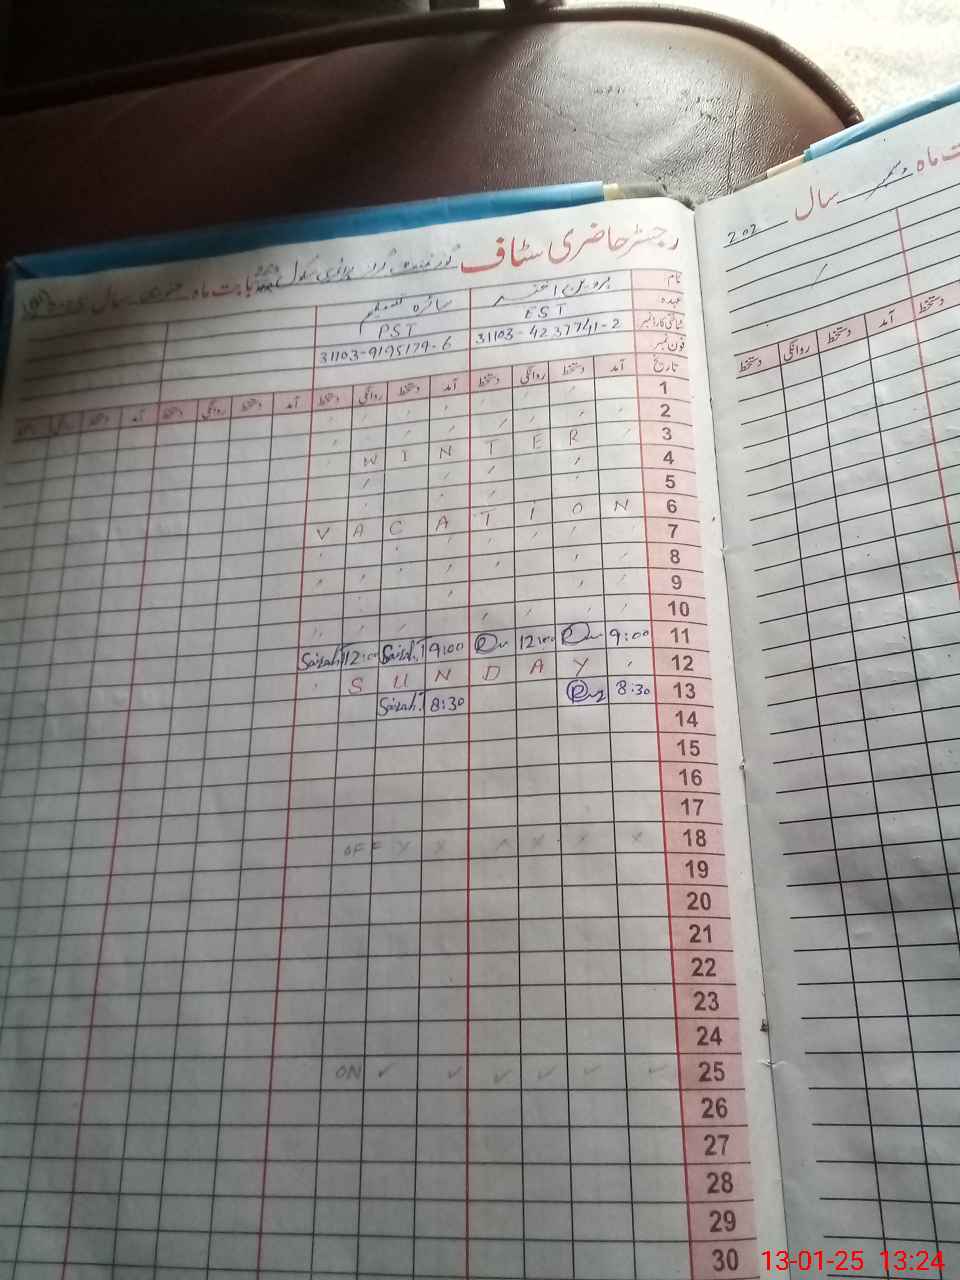 رجسٹر حاضری سٹاف گورنمنٹ گرلز پرائمری سکول بابت ماہ جنوری سال
نام
عہدہ EST PST
شناختی کارڈ نمبر 31103-4237741-2 31103-9195179-6
فون نمبر
تاریخ آمد دستخط روانگی دستخط آمد دستخط روانگی دستخط آمد دستخط روانگی دستخط آمد دستخط
1
2
3
WINTER
4
5
6
VACATION
7
8
9
10
11 9:00 12:00 9:00 Sairah.T 12:00 Sairah.T
12 SUNDAY
13 8:30 8:30 Sairah.T
14
15
16
17
18 OFF x x x x x x
19
20
21
22
23
24
25 ON ✓ ✓ ✓ ✓ ✓ ✓
26
27
28
29
30
ت ماہ دسمبر سال 202
آمد دستخط روانگی دستخط
13-01-25 13:24